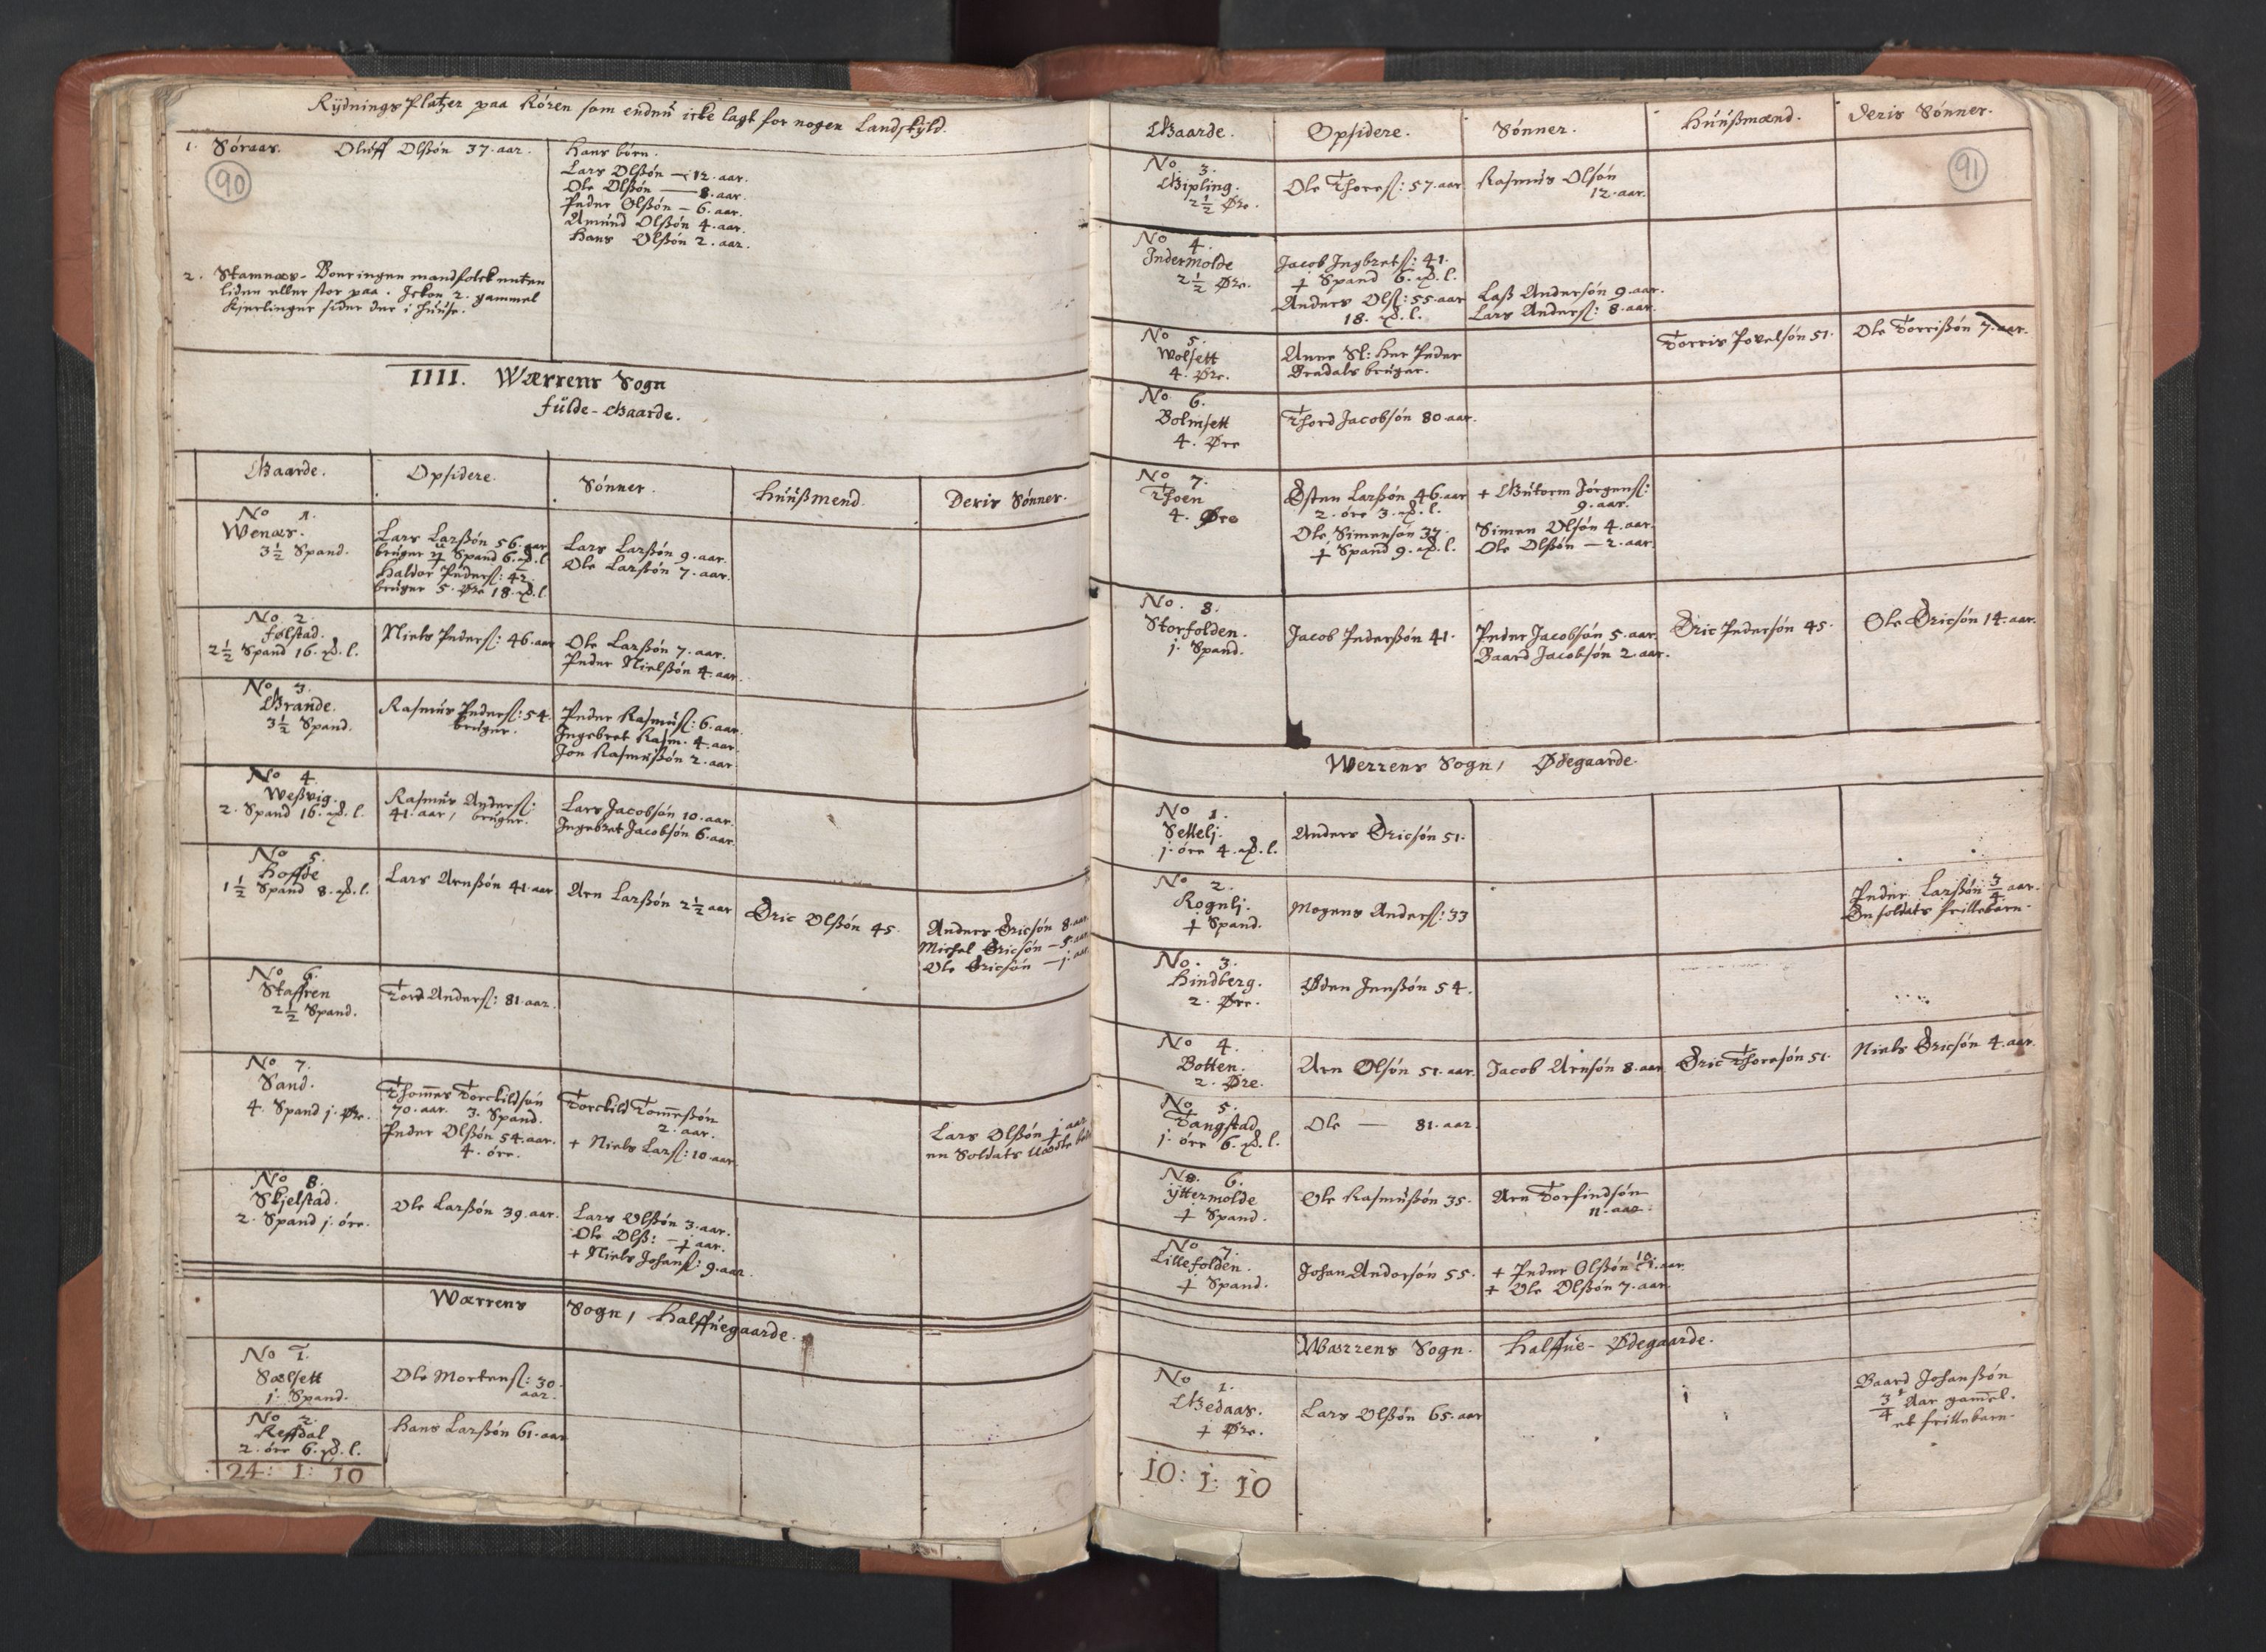 Rÿdnings Platzer paa Rören som endnu icke lagt for nogen Landskÿld.
90
1. Söraas. Oluff Olßön 37. aar.
Hans börn.
Lars Olßön — 12. aar.
Ole Olßön — 8. aar.
Peder Olßön — 6. aar.
Amund Olßön 4. aar.
Hans Olßön 2. aar.
2. Stamnæs. Boer ingen mandfolck enten
liden eller stor paa. Ickon 2. gammel
Kjerlinger sider der i huuse.
IIII. Wærrens Sogn
fulde-Gaarde.
Gaarde. Opsidere. Sönner. Huußmend. Deris Sönner.
No 1.
Wenæs.
3½ Spand.
Lars Larßön 56. aar
bruger Spand 6. ℔. l.
Haldor Peders: 42.
bruger 5. Øre 18. ℔. l.
Lars Larßön 9. aar.
Ole Larßön 7. aar.
No. 2.
følstad.
2½ Spand 16. ℔. l.
Niels Peders: 46. aar
Ole Larßön 7. aar.
Peder Nielßön 4. aar.
No 3.
Grande.
3½ Spand.
Rasmus Peders: 54.
bruger.
Peder Rasmus: 6. aar.
Ingebret Rasm. 4. aar.
Jon Rasmußön 2. aar.
No 4.
Weßvig.
2. Spand 16. ℔. l.
Rasmus Anders:
41. aar, bruger.
Lars Jacobsön 10. aar.
Ingebret Jacobsön 6. aar.
No 5.
Hoffde
1½ Spand 8. ℔. l.
Lars Arnßön 41. aar
Arn Larßön 2½ aar
Eric Olßön 45.
Anders Ericsön 8. aar
Michel Ericsön — 5. aar
Ole Ericsön — j. aar
No 6.
Staffren
2½ Spand.
Tord Anders: 81. aar.
No 7.
Sand.
4. Spand j. Øre.
Thom̄es Torckildsøn
70. aar. 3. Spand.
Peder Olßön 54. aar.
4. öre.
Torckild Tom̄eßön
2. aar.
+ Niels Lars: 10. aar.
Lars Olßön ɉ aar
en Soldats
No 8.
Skjelstad.
2. Spand j. öre.
Ole Larßön 39. aar.
Lars Olßön 3. aar.
Ole Olß: — ɉ aar.
+ Niels Johans: 9. aar.
Wærrens Sogn, Halffuegaarde.
No 1.
Sælsett
j. Spand.
Ole Mortens: 30.
aar.
No 2.
Reffdal
2. öre 6. ℔. l.
Hans Larßön 61. aar
24: 1: 10
Gaarde. Opsidere. Sönner. Huußmænd. Deris Sönner.
91
No. 3.
Gipling.
2½ Øre.
Ole Thores: 57. aar
Rasmus Olsön
12. aar.
No 4.
Indermolde
2½ Øre.
Jacob Ingbrets: 41.
ɉ Spand 6. ℔. l.
Anders Ols: 55. aar
18. ℔. l.
Laß Andersön 9. aar.
Lars Anders: 8. aar.
No 5.
Wolsett
4. Øre.
Anne Sl: Her Peder
Dradals bruger.
Torris Povelsön 51.
Ole Torrißön 7. aar.
No 6.
Bolmsett
4. Øre
Thord Jacobsön 80. aar.
No 7.
Thoen
4. Øre
Østen Larßön 46. aar
2. öre 3. ℔. l.
Ole Simensön 37.
ɉ Spand 9. ℔. l.
+ Gutorm Jörgens:
9. aar.
Simen Olsön 4. aar.
Ole Olßön — 2. aar.
No. 8.
Storfolden.
j. Spand.
Jacob Pederßön 41.
Peder Jacobsön 5. aar.
Baard Jacobsön 2. aar.
Eric Pedersön 45.
Ole Ericsön 14. aar.
Werrens Sogn, Ødegaarde.
No 1.
Settelj.
j. öre 4. ℔. l.
Anders Ericsön 51.
No 2.
Rognlj.
ɉ Spand.
Mogens Anders: 33
Peder Larßön ¾ aar.
En soldats frillebarn.
No. 3.
Hindberg.
2. Øre.
Øden Jenßön 54.
No 4.
Botten.
2. Øre.
Arn Olsön 51. aar.
Jacob Arnsön 8. aar
Eric Thoresön 51.
Niels Ericsön 4. aar.
No 5.
Tangstad
j. öre 6. ℔. l.
Ole — 81. aar.
No. 6.
Ÿttermolde
ɉ Spand.
Ole Rasmußön 35.
Arn Torfindsön
11. aar.
No 7.
Lillefolden.
ɉ Spand.
Johan Andersön 55.
+ Peder Olßön 10. aar.
+ Ole Olßön 7. aar.
Wærrens Sogn. Halffue-Ødegaarde.
No 1.
Gedaas.
ɉ Øre.
Lars Olßön 65. aar
Baard Johanßön
¾ Aar gam̄el.
et frillebarn.
10: 1: 10